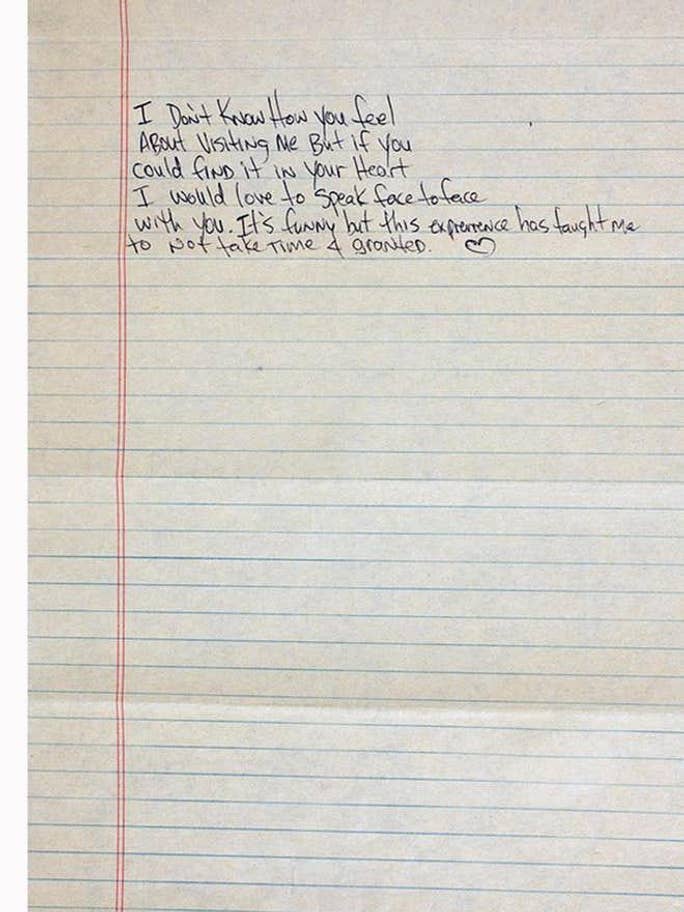 I Don't Know How you feel
About Visiting Me But if you
could find it in your Heart
I would love to speak face to face
with you. It's funny but this exprerrence has taught me
to not take Time 4 granted. ♡